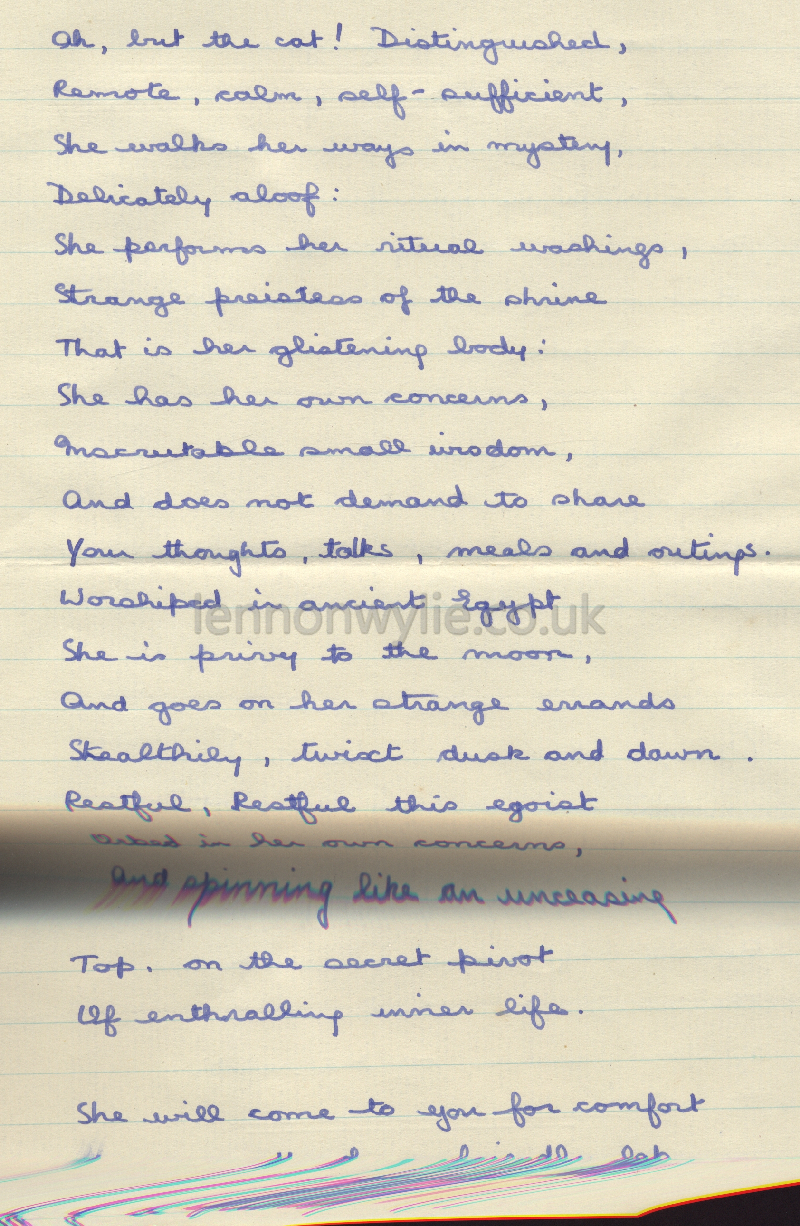 Ah, but the cat! Distinguished,
Remote, calm, self-sufficient,
She walks her ways in mystery,
Delicately aloof:
She performs her ritual washings,
Strange preistess of the shrine
That is her glistening body:
She has her own concerns,
Inscrutable small wisdom,
And does not demand to share
Your thoughts, talks, meals and outings.
Worshiped in ancient Egypt
lennonwylie.co.uk
She is privy to the moon,
And goes on her strange errands
Stealthily, twixt dusk and dawn.
Restful, Restful this egoist
in her own concerns,
And spinning like an unceasing
Top. on the secret pivot
Of enthralling inner life.
She will come to you for comfort